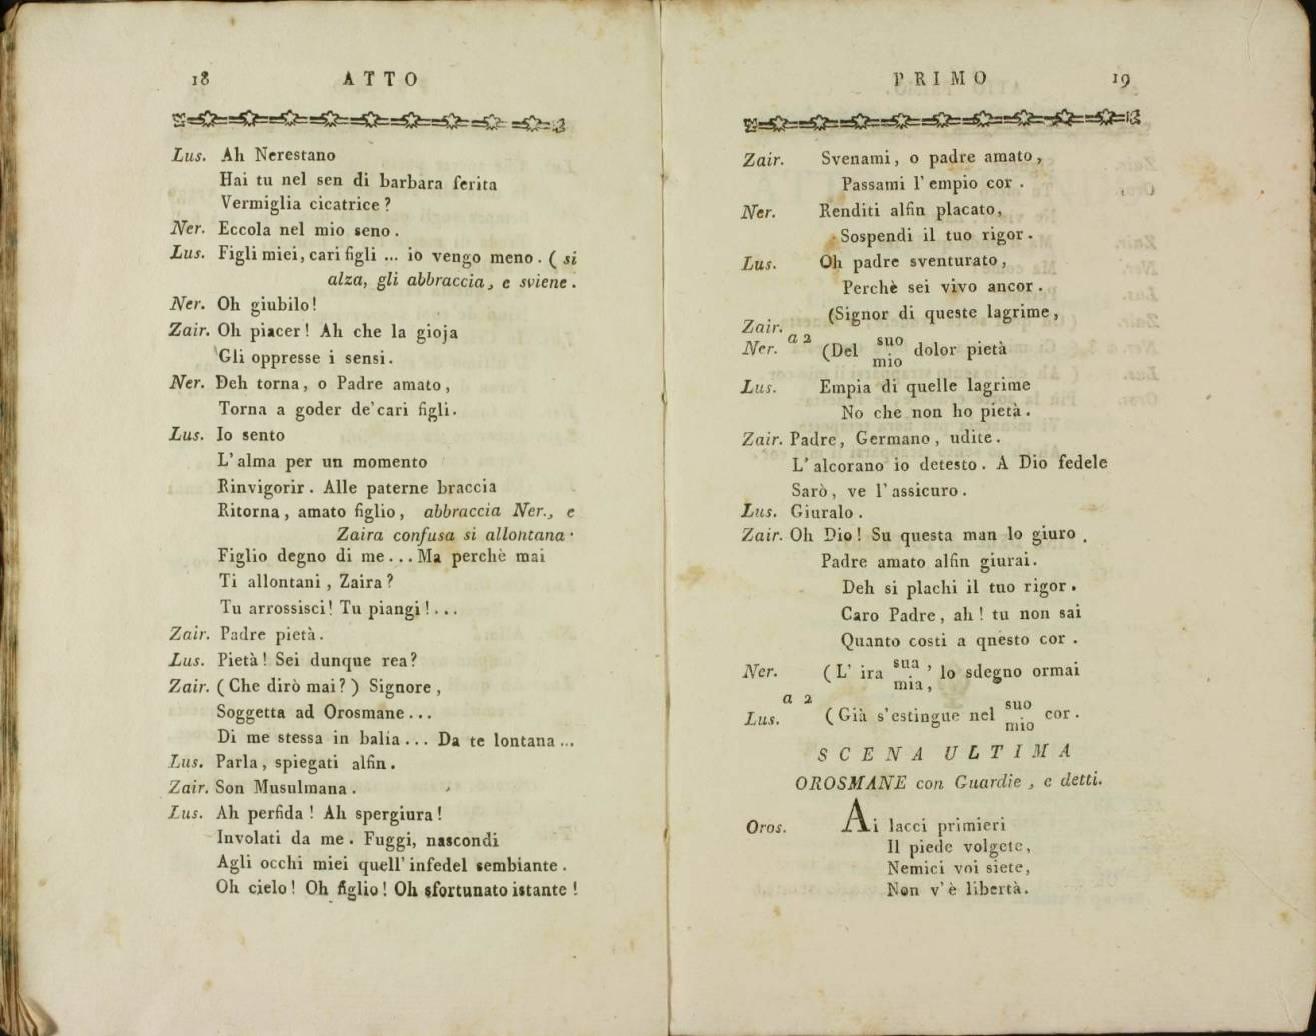 18 ATTO
Lus. Ah Nerestano
Hai tu nel sen di barbara ferita
Vermiglia cicatrice?
Ner. Eccola nel mio seno.
Lus. Figli miei, cari figli ... io vengo meno. ( si
alza, gli abbraccia, e sviene.
Ner. Oh giubilo!
Zair. Oh piacer! Ah che la gioja
Gli oppresse i sensi.
Ner. Deh torna, o Padre amato,
Torna a goder de' cari figli.
Lus. Io sento
L'alma per un momento
Rinvigorir. Alle paterne braccia
Ritorna, amato figlio, abbraccia Ner., e
Zaira confusa si allontana.
Figlio degno di me... Ma perchè mai
Ti allontani, Zaira?
Tu arrossisci! Tu piangi!...
Zair. Padre pietà.
Lus. Pietà! Sei dunque rea?
Zair. ( Che dirò mai? ) Signore,
Soggetta ad Orosmane...
Di me stessa in balia... Da te lontana...
Lus. Parla, spiegati alfin.
Zair. Son Musulmana.
Lus. Ah perfida! Ah spergiura!
Involati da me. Fuggi, nascondi
Agli occhi miei quell'infedel sembiante.
Oh cielo! Oh figlio! Oh sfortunato istante!
PRIMO 19
Zair. Svenami, o padre amato,
Passami l'empio cor.
Ner. Renditi alfin placato,
Sospendi il tuo rigor.
Lus. Oh padre sventurato,
Perchè sei vivo ancor.
(Signor di queste lagrime,
Zair.
Ner. a 2 (Del suo dolor pietà
mio
Lus. Empia di quelle lagrime
No che non ho pietà.
Zair. Padre, Germano, udite.
L'alcorano io detesto. A Dio fedele
Sarò, ve l'assicuro.
Lus. Giuralo.
Zair. Oh Dio! Su questa man lo giuro.
Padre amato alfin giurai.
Deh si plachi il tuo rigor.
Caro Padre, ah! tu non sai
Quanto costi a qnesto cor.
Ner. ( L'ira sua, lo sdegno ormai
mia,
a 2
Lus. ( Già s'estingue nel suo cor.
mio
SCENA ULTIMA
OROSMANE con Guardie, e detti.
Oros. Ai lacci primieri
Il piede volgete,
Nemici voi siete,
Non v'è libertà.